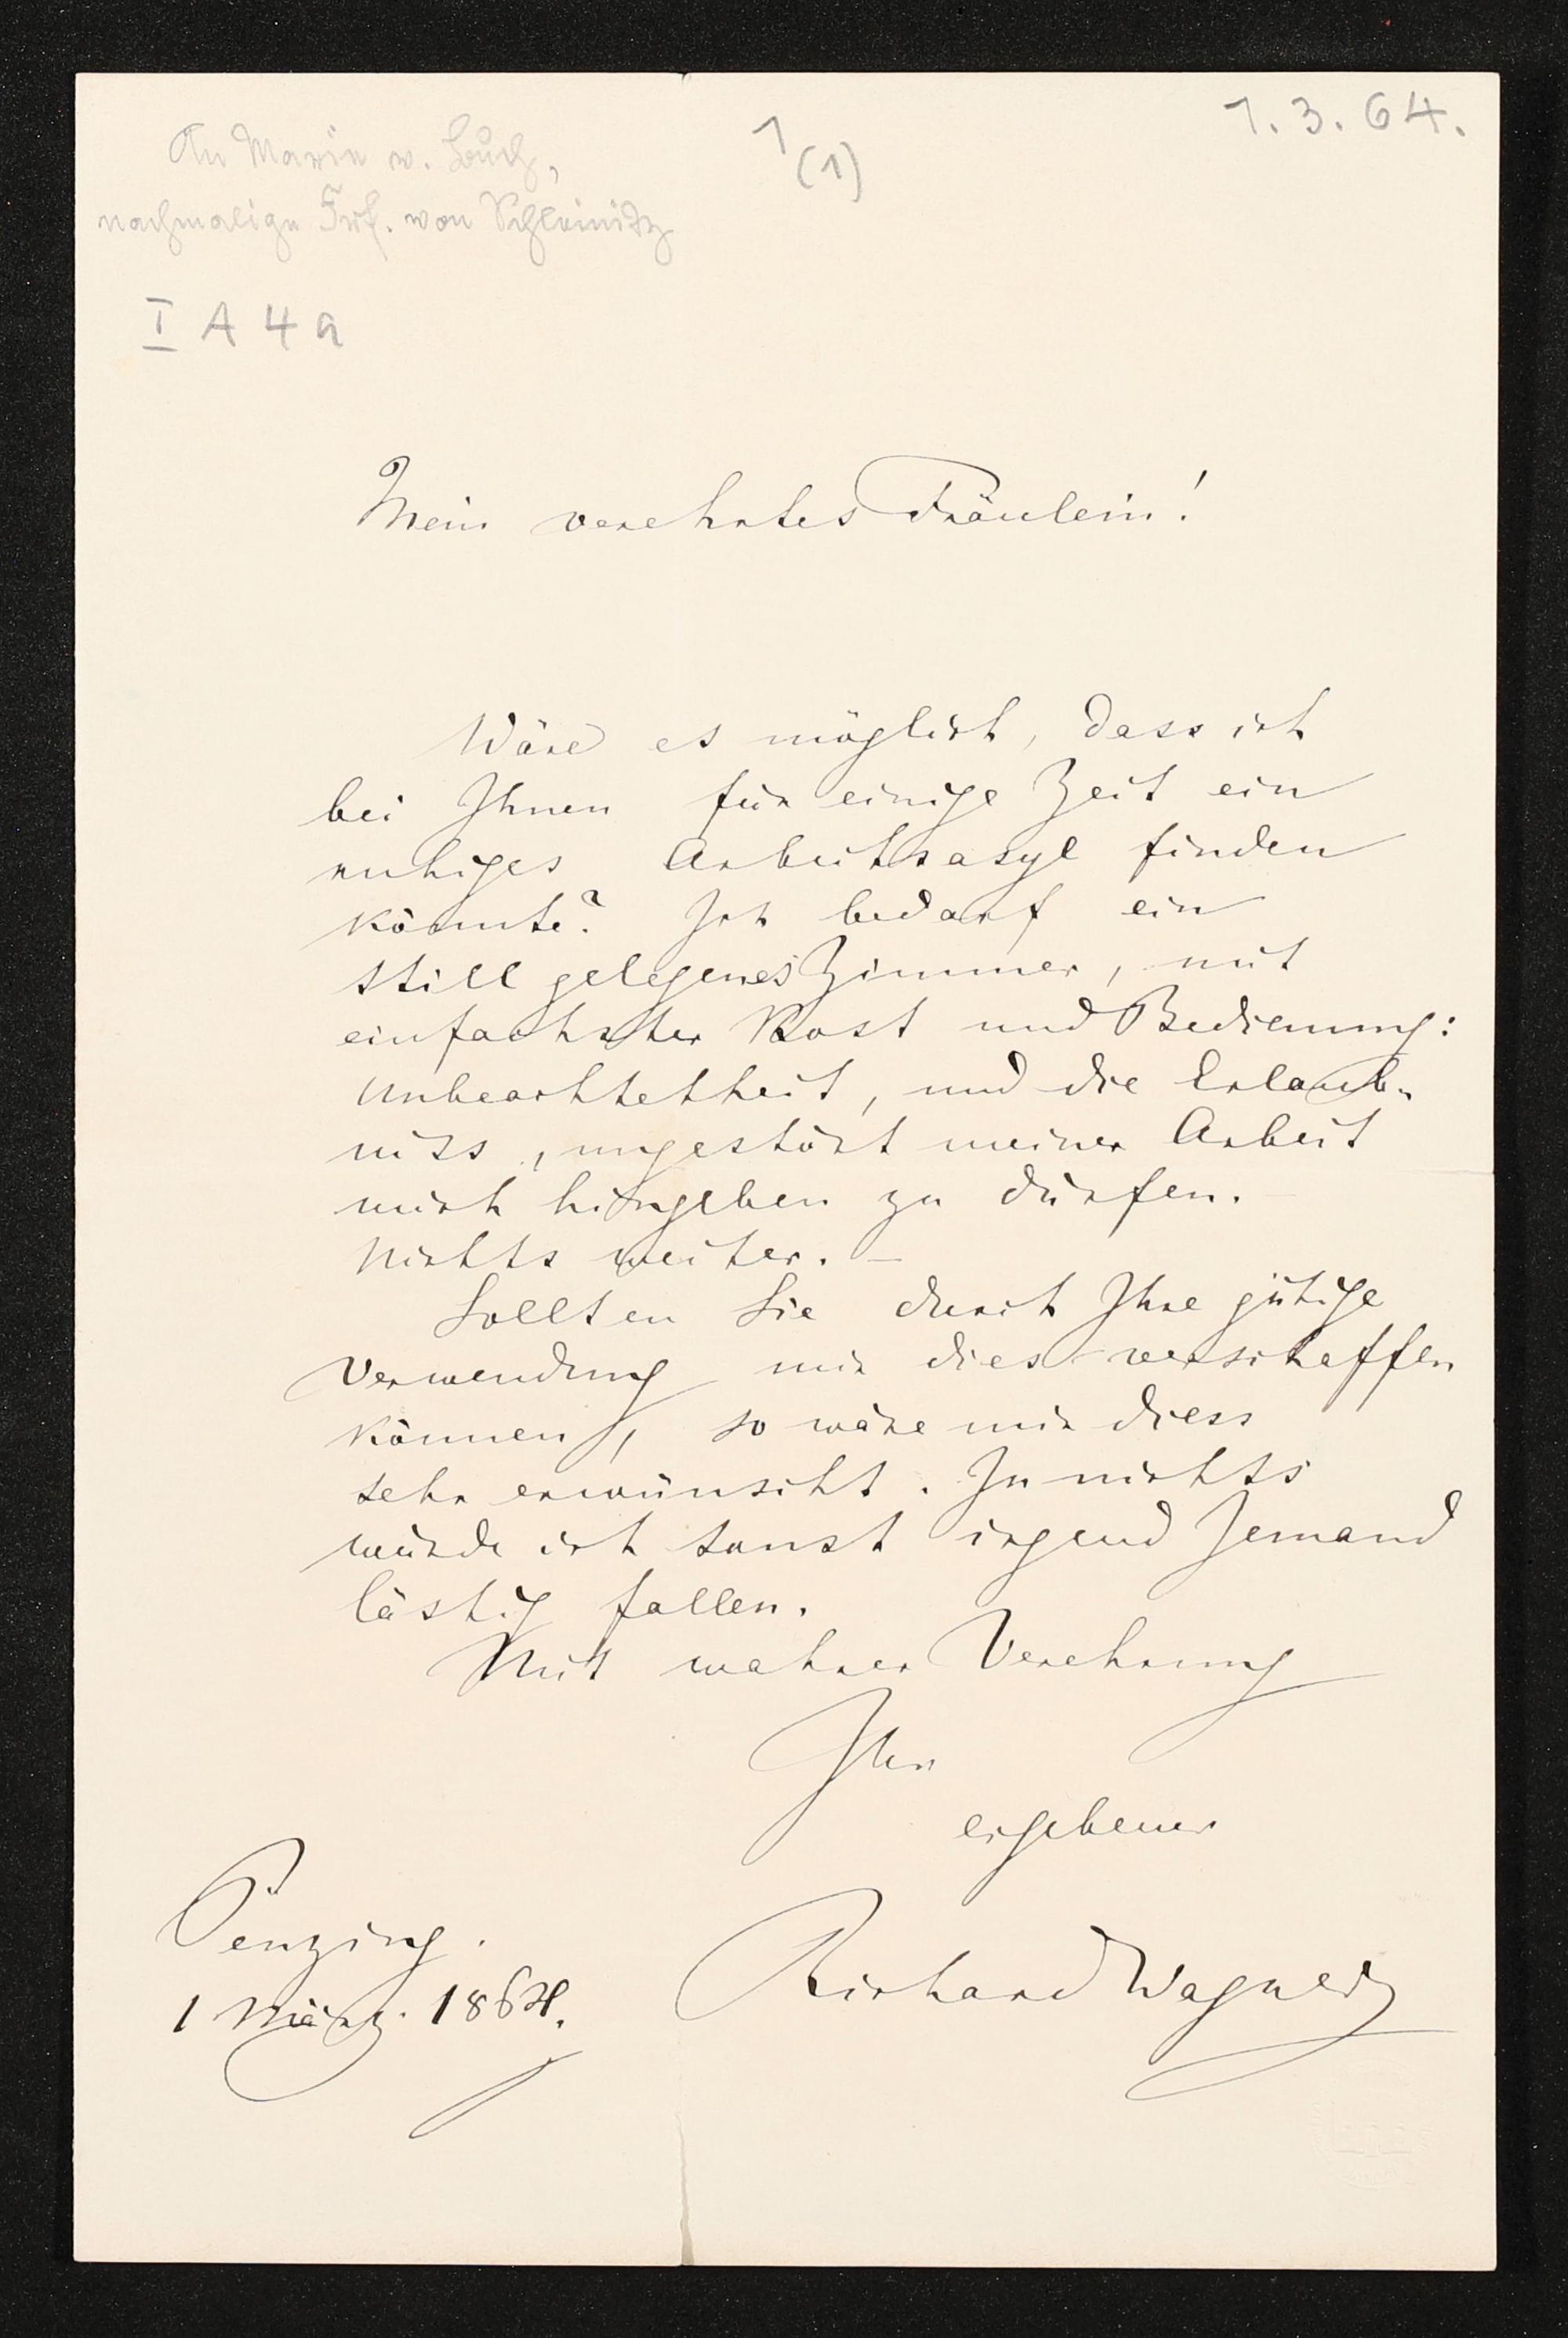 1.3.64.
1
(1)
An Marie v. Buch,
nachmalige Frf. von Schleinitz
I A 4 a
Mein verehrtes Fräulein!
Wäre es möglich, dass ich
bei Ihnen für einige Zeit ein
ruhiges Arbeitsasyl finden
könnte? Ich bedarf ein
still gelegenes Zimmer, mit
einfachster Kost und Bedienung:
Unbeachtetheit, und die Erlaub-
niss, ungestört meiner Arbeit
mich hingeben zu dürfen.
Nichts weiter. —
Sollten Sie durch Ihre gütige
Verwendung mir dies verschaffen
können, so wäre mir diess
sehr erwünscht. In nichts
würde ich sonst irgend Jemand
lästig fallen.
Mit wahrer Verehrung
Ihr
ergebener
Richard Wagner
Penzing.
1 März. 1864.